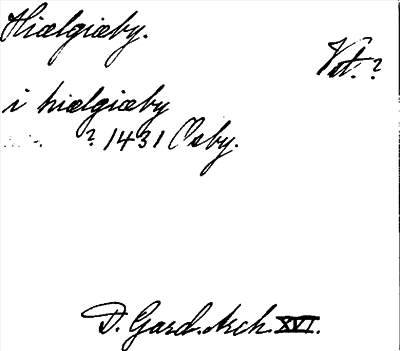 Hiælgiæby.
Vst.?
i hiælgiæby
? 1431 Osby.
D. Gard. Arch. XVI.